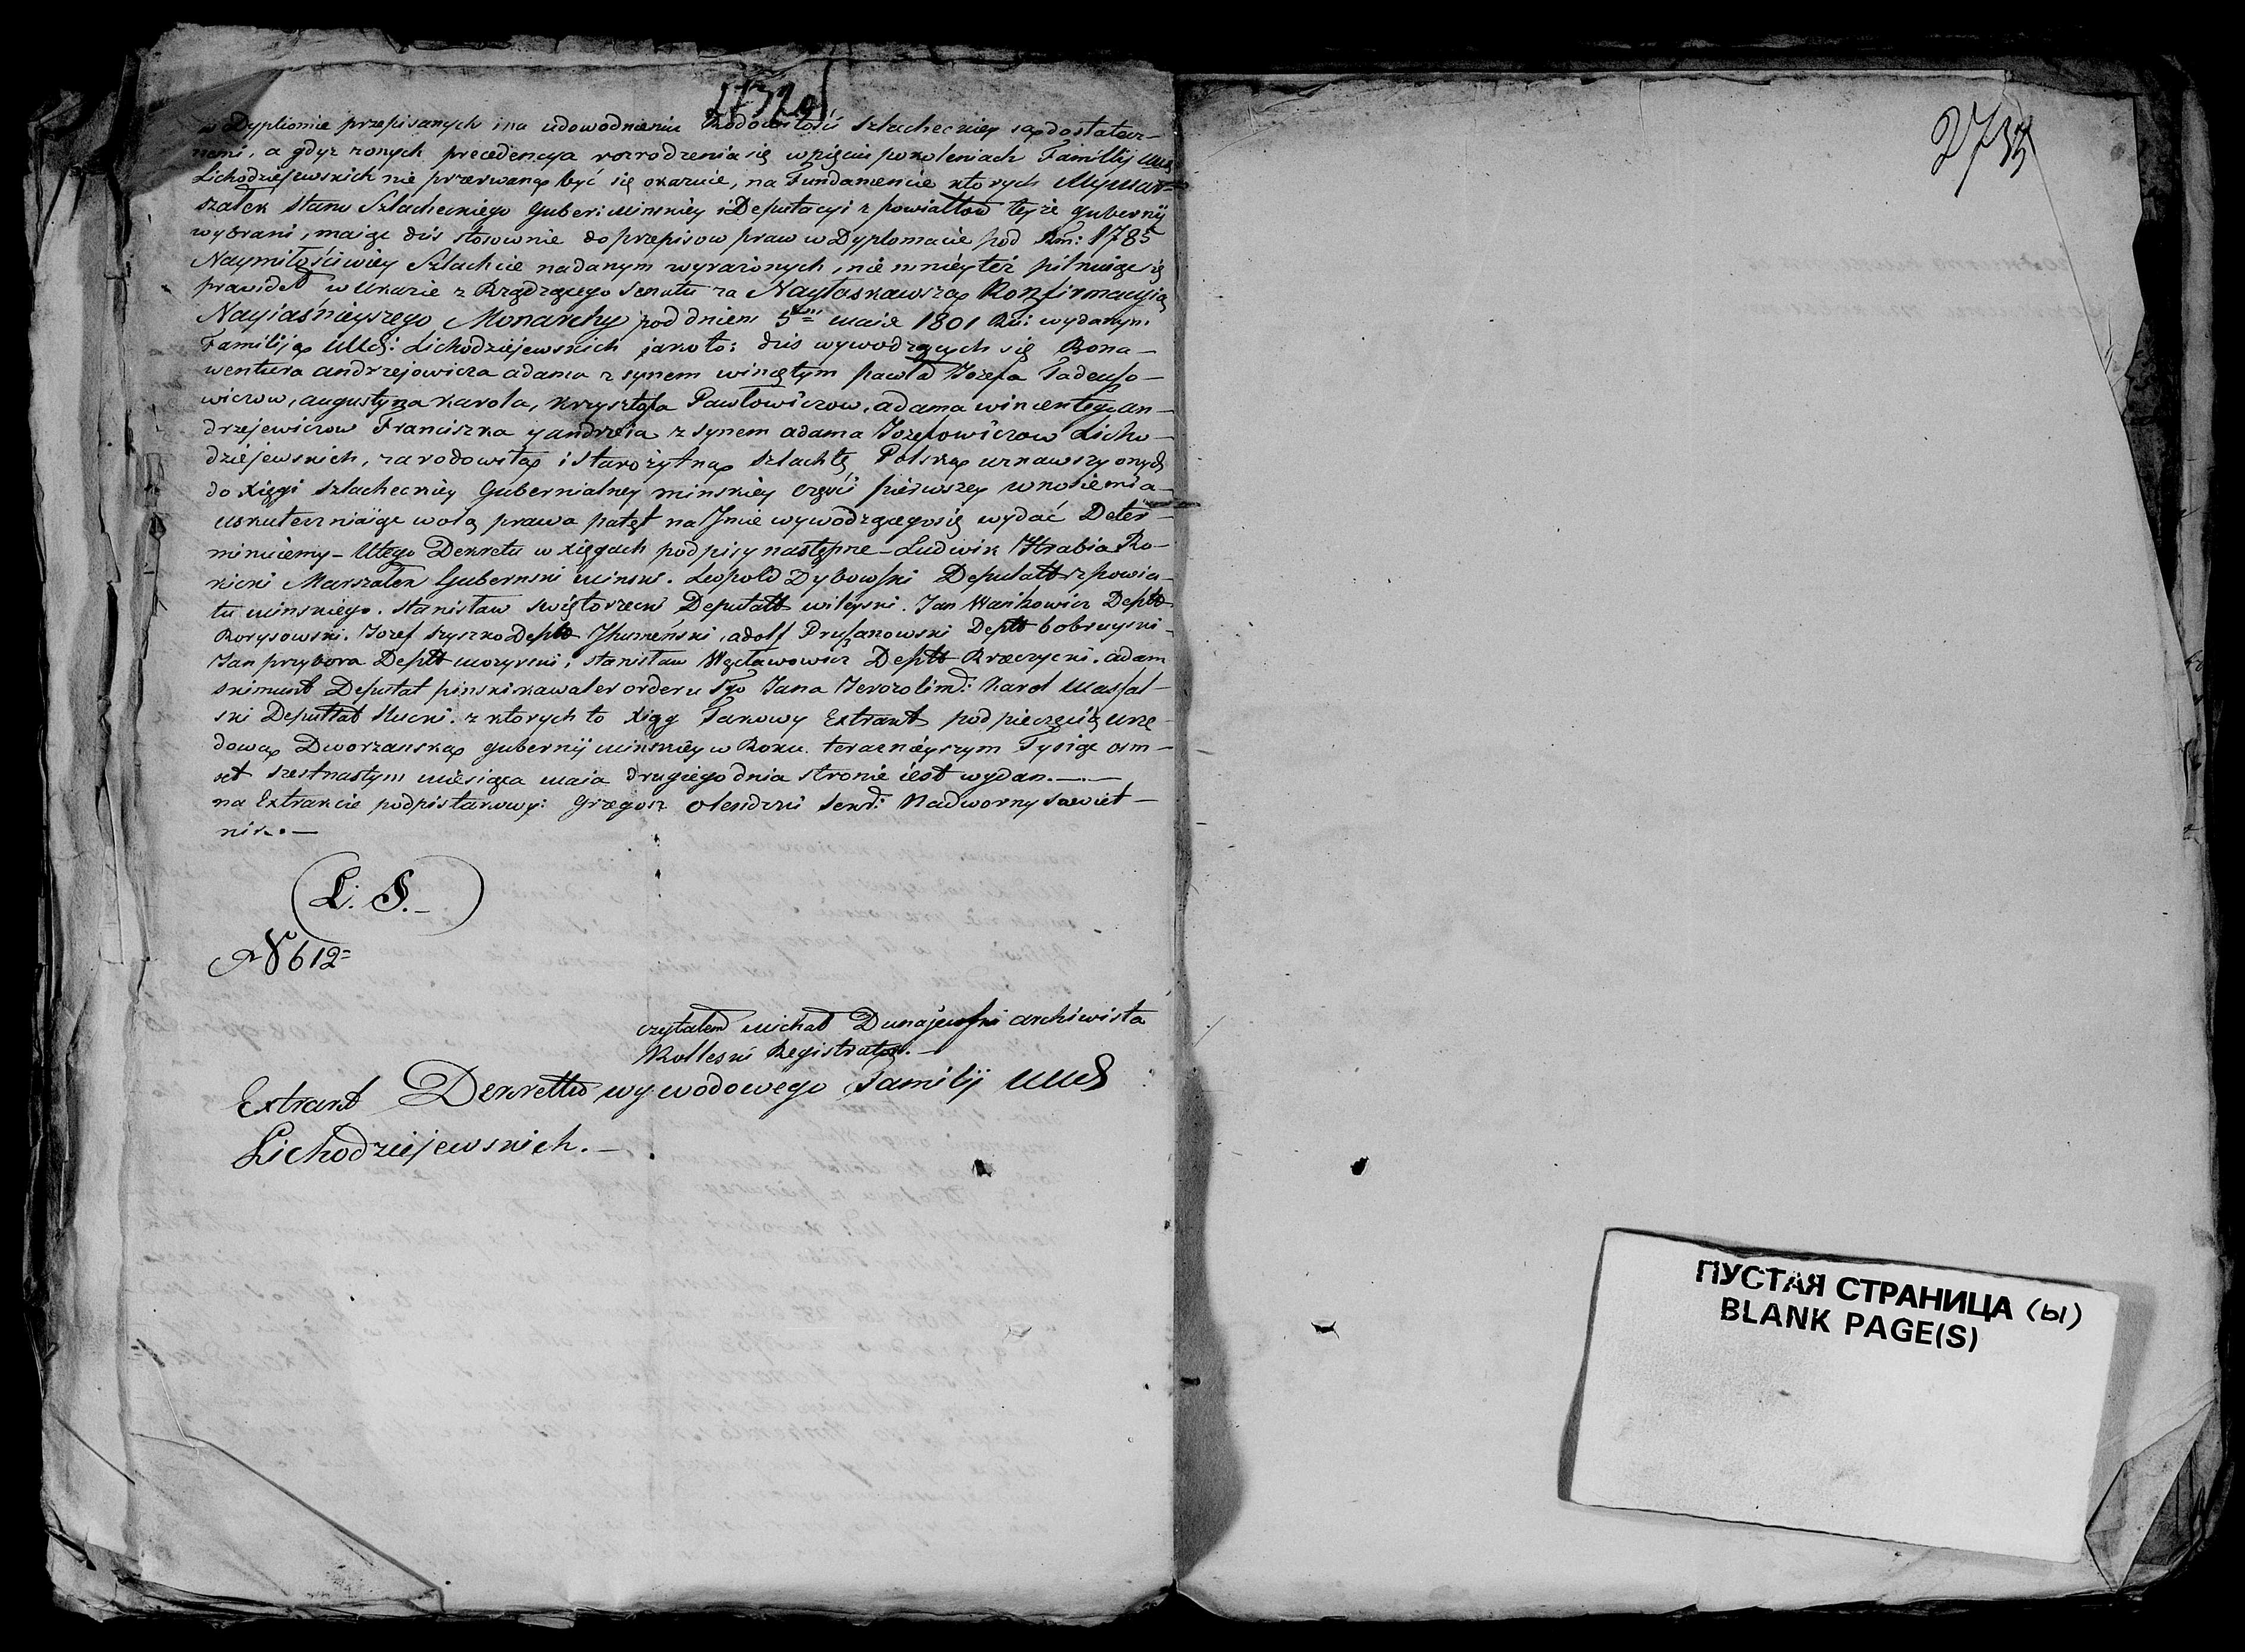 w Dyplomie przepisanych i na udowodnienie Rodowitości Szlacheckiey są dostatecz-
nemi, a gdyż z onych precedencya rozrodzenia się w pięciu pokoleniach Familij
Lichodziejewskich nie przerwaną być się okazuie, na Fundamencie których My Mar-
szałek Stanu Szlacheckiego Guber: Minskiey i Deputaci z powiattow teyże gubernij
wybrani, maiąc dus stosownie do przepisow praw w Dyplomacie pod Rm: 1785
Naymiłościwiey Szlachcie nadanym wyrażonych, nie mniey też pilnuiąc się
prawideł w Ukazie z Rządzącego Senatu za Nayłaskawszą Konfirmacyią
Nayiaśnieyszego Monarchy pod dniem 5 maia 1801 Ru: wydanym
Familiją Lichodziejewskich jako to: dus wywodzących się Bona-
wentura andrzejowicza adama z synem wincętym pawła Jozefa Tadeuszo-
wiczow, augustyna karola, krzysztofa Pawłowiczow, adama wincentego an-
drzejewiczow Franciszka y andrzeia z synem adama Jozefowiczow Licho-
dziejewskich, za rodowitą i starożytną szlachtę Polską uznawszy onych
do xięgi szlacheckiey Gubernialney minskiey części pierwszey wnosiemia
uskuteczniaiąc wolą prawa patęt na Jmie wywodzącego się wydać Deter-
minuiemy - U tego Dekretu w xięgach podpisy następne - Ludwik Hrabia Ro-
kicki Marszałek Gubernski Minski. Leopold Dybowski Deputatt z powia-
tu minskiego. Stanisław Swiętorzecki Deputatt wileyski. Jan Wańkowicz Deptt
Borysowski. Jozef Szyszko Deptt Jhumeński, adolf Pruszanowski Deptt bobruyski -
Jan przybora Deptt mozyrski, Stanisław Węcławowicz Deptt Rzeczycki. adam
skirmunt Deputat pinski kawaler orderu Sgo Jana Jerozolimd: Karol Massal-
ski Deputtat Słucki. z ktorych to xiąg Takowy Extrakt pod pieczęcią urzę-
dową Dworzanską gubernij minskiey w Roku teraznieyszym Tysiąc osm-
set szestnastym miesiąca maia drugiego dnia stronie iest wydan. —.—
na Extrakcie podpis takowy: Grzegorz Olendzki Sekr: Nadworny Sowiet-
nik. —
L. S. —
N 612
czytałem Michał Dunajewski archiwista
Kolleski Registrator. —
Extrakt Dekrettu wywodowego Familij
Lichodziejewskich. —
273
ПУСТАЯ СТРАНИЦА (Ы)
BLANK PAGE(S)